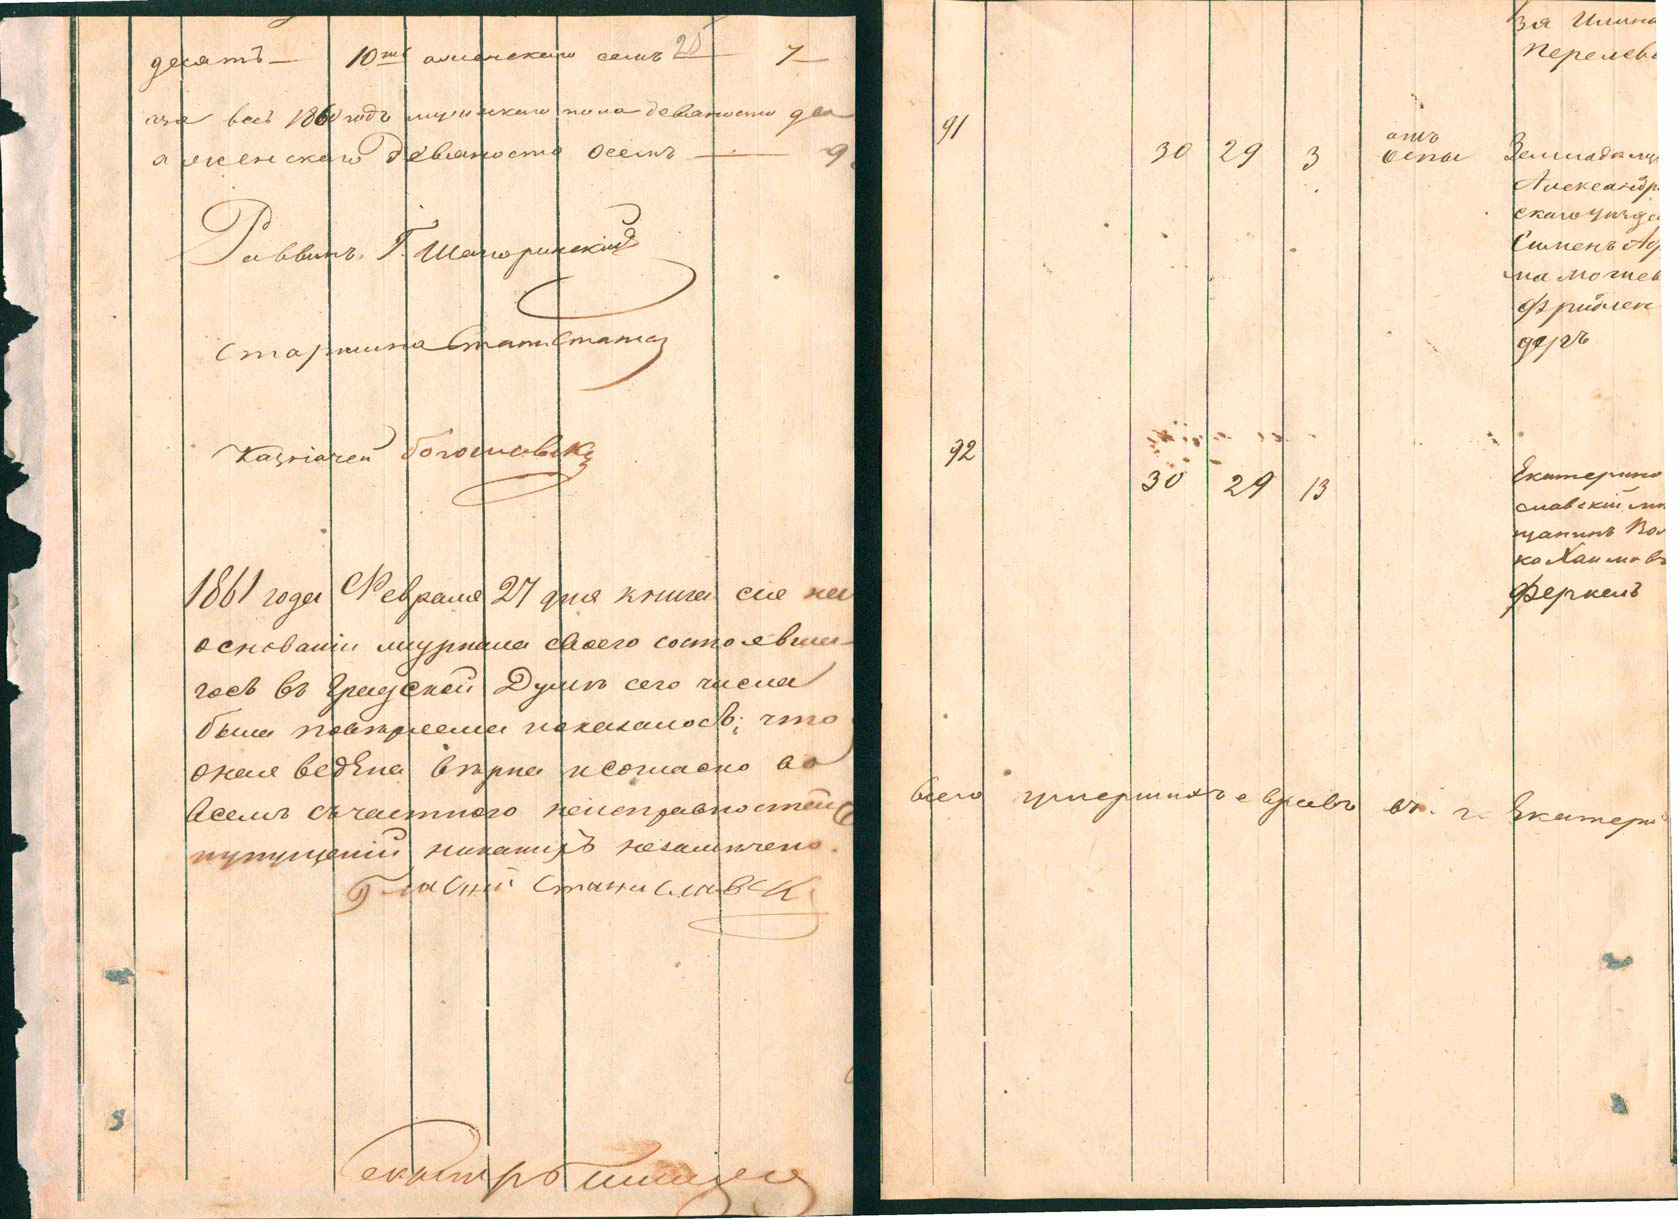 десять — 10ть женскаго семь 25 — 7 —
за весь 1860 годъ мужскаго пола девяносто два
а женскаго девяносто осемь — 9
Раввинъ Г. Шапоринскій
Старшина
Казначей Богославск
1861 года Февраля 27 дня книга сія на
основаніи журнала своего состоявша-
гось въ Градской Думѣ сего числа
была повѣряема показалось; что
оная ведена вѣрна и согласно во
всемъ съ частного неисправностей
пупущеній никакихъ незамѣчено.
Гласній Станиславск
Секретарь
зя
Перелев
91 30 29 3 отъ оспы Земладѣлец
Александр
скаго уѣзда
Сименъ Аб
ма Мошев
Фридлен
деръ
92 30 29 13 Екатерино
славскій мѣ
щанинъ Вол
ко Хаимовъ
Феркель
Всего умершихъ евреевъ въ г. Екатери